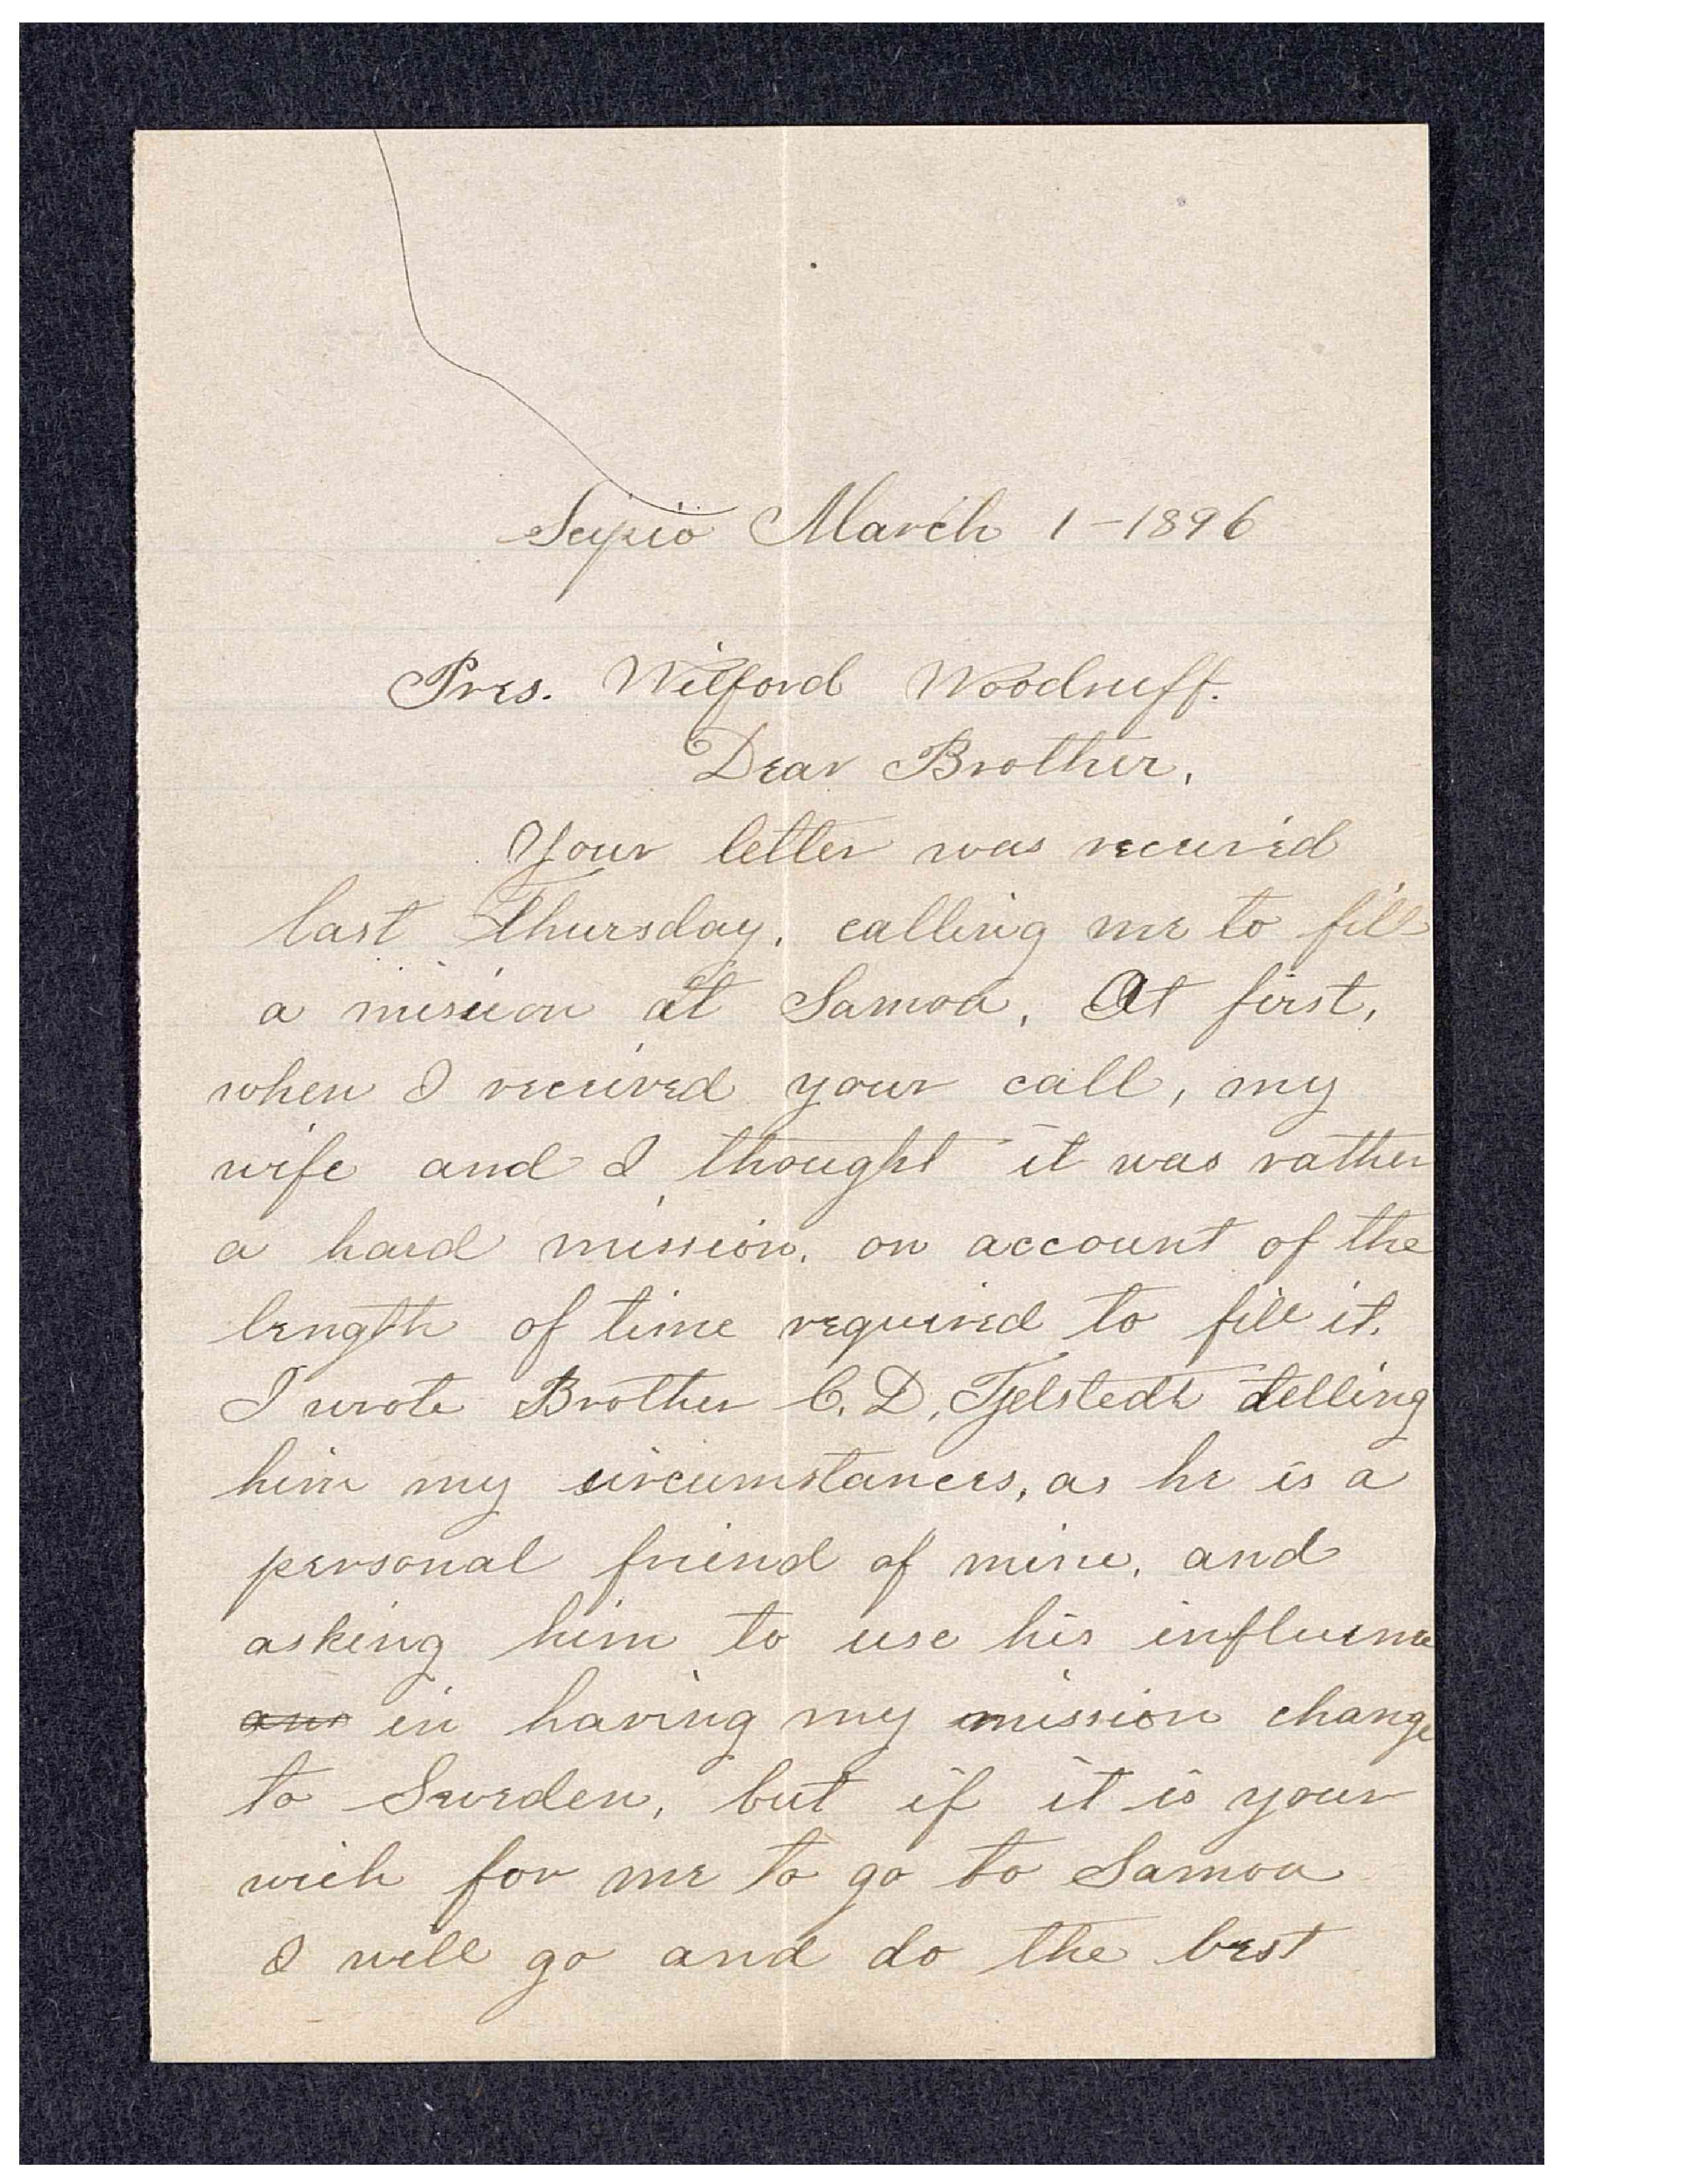 Scipio March 1-1896
Pres. Wilford Woodruff.
Dear Brother,
Your letter was received
last Thursday, calling me to fill
a mission at Samoa, At first,
when I received your call, my
wife and I thought it was rather
a hard mission, on account of the
length of time required to fill it.
I wrote Brother C. D, Fjelstedt telling
him my circumstances, as he is a
personal friend of mine, and
asking him to use his influence
in having my mission change
to Sweden, but if it is your
wich for me to go to Samoa
I will go and do the best